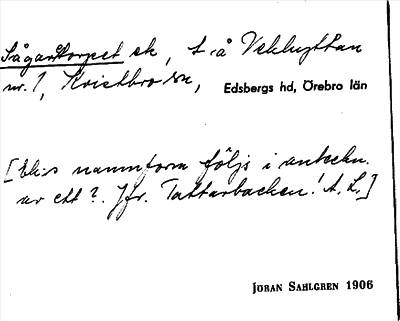 Sågartorpet sk, t. å Vekhyttan
nr. 1, Kvistbro sn, Edsbergs hd, Örebro län
[Eli:s namnform följs i anteckn.
av ett ?. Jfr. Tattarbacken! A. L.]
JÖRAN SAHLGREN 1906